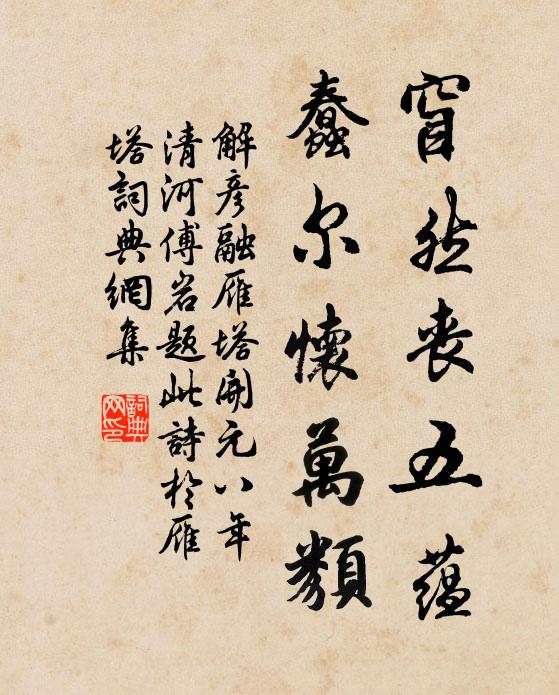 窅然丧五蕴
蠢尔懷萬類
解彦融雁塔開元八年
清河傅岩題此詩於雁
塔詞典網集
詞典网印